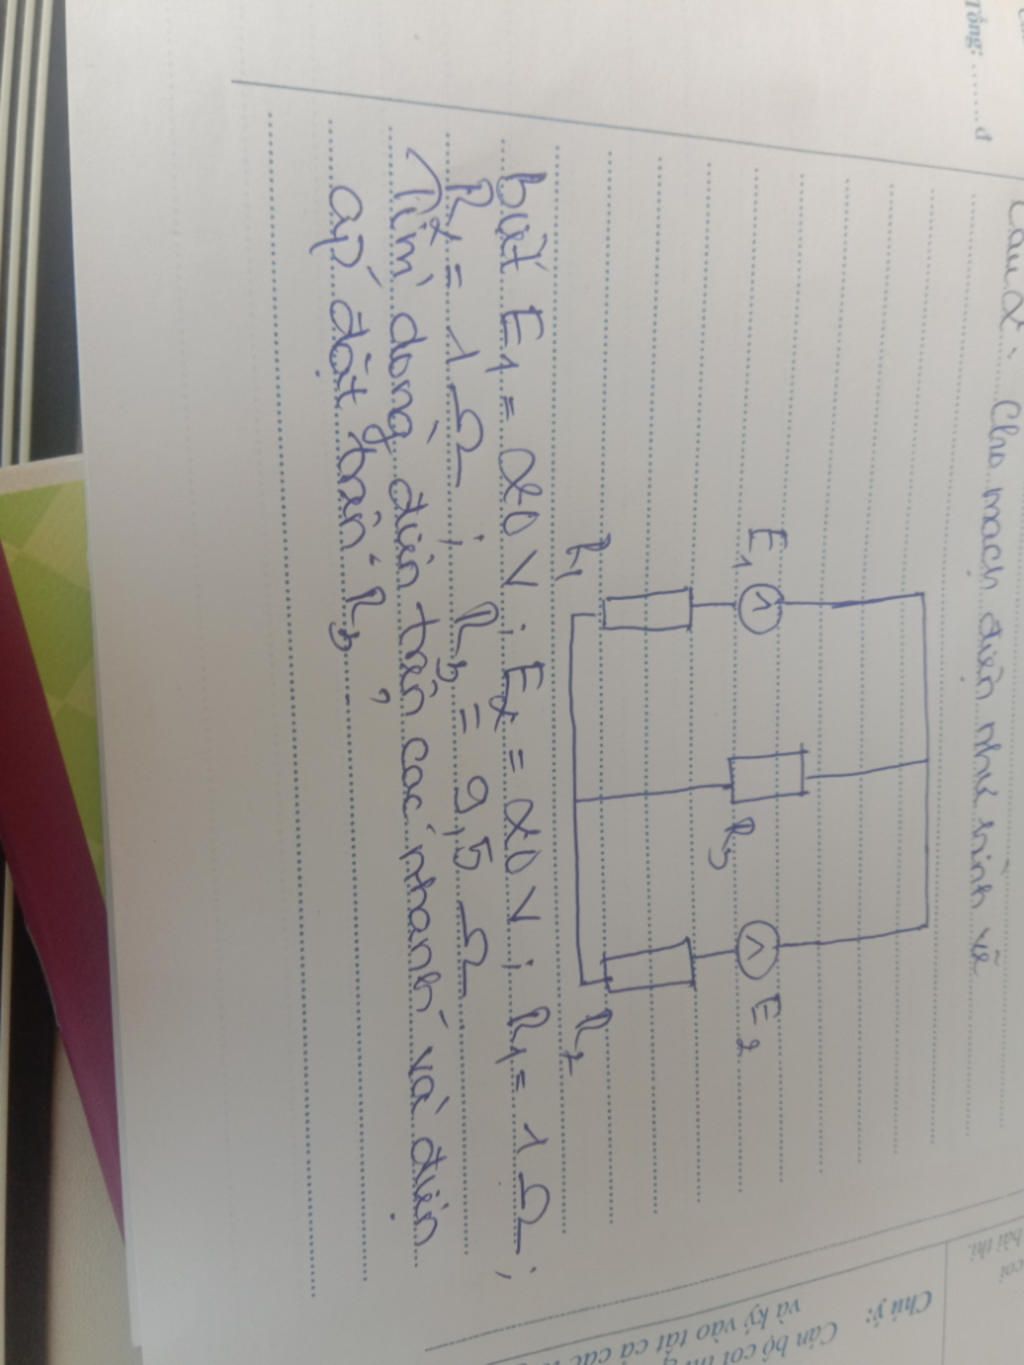 Tổng: ........ đ
Câu 2. Cho mạch điện như hình vẽ
E₁
R₃
E₂
R₁
R₂
biết E₁ = 20 V ; E₂ = 20 V ; R₁ = 1 Ω ;
R₂ = 1 Ω ; R₃ = 9,5 Ω
Tìm dòng điện trên các nhánh và điện
áp đặt trên R₃
Chú ý:
Cán bộ coi thi
và ký vào tất cả các
coi
bài thi.